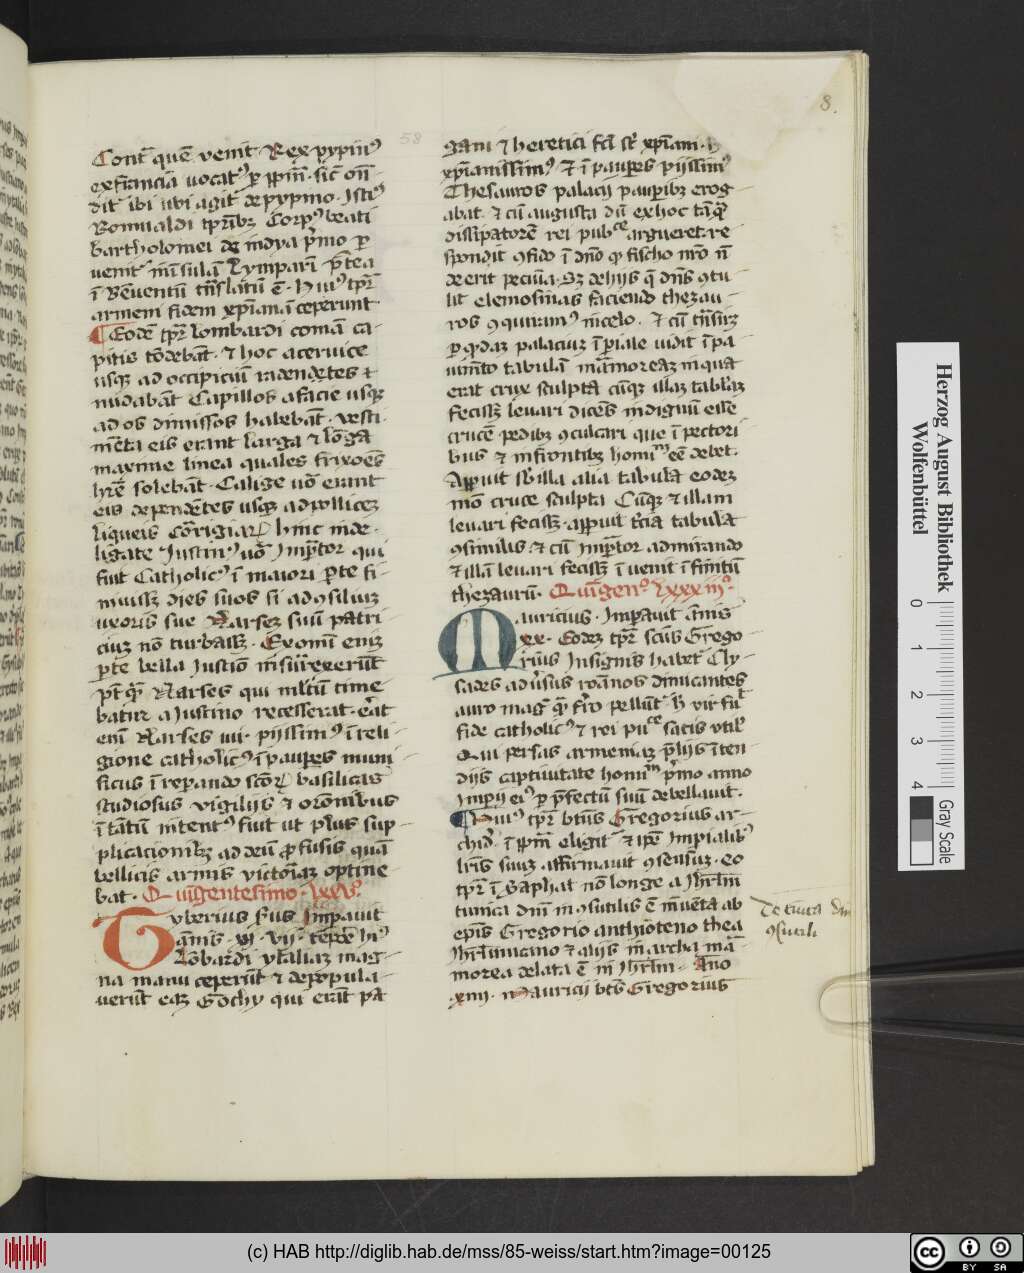 8.
58
Cont̄ quē venit Rex pypin⁹
ex francia uocat⁹ ꝑ ppm̄. sic on̄
dit ibi ubi agit de pypino. Isti⁹
Romualdi tꝑrib⁹ Corp⁹ beati
bartholomei de indya p̄mo ꝑ
uenit in īsulā Lympari p̄tea
ī Beneuentū tn̄slatū ē. Hui⁹ tꝑr̄
armem fidem xp̄ianā ceperunt
¶ Eodē tꝑr̄ lombardi comā ca-
pitis tōdebāt. ⁊ hoc a ceruice
usqꝫ ad occipiciū radendētes ⁊
nudabāt Capillos a facie usqꝫ
ad os dimissos habebāt. vesti-
mēta eis erant larga ⁊ lōga
maxime linea quales frixoēs
hr̄e solebāt. Calige uō erant
eis dependētes usqꝫ ad pollicez
liqueis corrigiaꝝ hinc inde-
ligate Iustin⁹ uō Impāt̄or qui
fuit Catholic⁹ ī maiori ꝑte fi-
niuissꝫ dies suos si ad ꝯsiliuꝫ
uxoris sue Narsez suū patri-
ciuꝫ nō turbassꝫ. Ex omī eniꝫ
ꝑte bella Iustiō insurrexerūt
pt̄ qꝫ Narses qui ml̄tū time
batur a Iustino recesserat. erāt
enī Narses uir pijssim⁹ ī reli-
gione catholic⁹ ī paupes muni-
ficus ī repando sc̄oꝝ basilicas
studiosus vigilijs ⁊ orōnibus
ī tātū intent⁹ fuit ut pl̄us sup-
plicacionibꝫ ad deū ꝓfusis quā
bellicis armis victoriaꝫ optine-
bat. Quīgentesimo. lxxv⁰.
Tyberius s̄cus Impauit
ānis. vi. vij. tēpē hi⁹
Lōbardi ytaliaꝫ mag-
na manu ceperūt ⁊ depopula-
uerūt eaꝫ Gōthy qui erāt pa-
gani ⁊ heretici fc̄i st̄ xp̄iani. h⁹
xp̄ianissim⁹ ⁊ ī paupes pijssim⁹
Thesauros palacij paupibꝫ erog-
abat. ⁊ cū augusta dū ex hoc tāqꝫ
dissipatorē rei pub͞ce argueret re-
spondit ꝯfido ī dn̄o qꝫ fischo nr̄o nō
deerit pecuīa. Sꝫ de hijs q̄ dn̄s ꝯtu-
lit elemosinas faciendo thezau-
ros ꝯquiram⁹ in celo. ⁊ cū tn̄sirꝫ
ꝑ qꝫdaꝫ palaciuꝫ īperiale uidit ī pa-
uimēto tabulā mamoreaꝫ in qua
erat crux sculpta cūqꝫ illaꝫ tabulaꝫ
fecissꝫ leuari dicēs indignū eiſſe
crucē pedibꝫ ꝯculcari que ī pectori-
bus ⁊ in frontibꝫ homīm eē debet.
Appuit sb̄ illa alia tabula eodeꝫ
mō cruce sculpta Cūqꝫ ⁊ illam
leuari fecissꝫ. appuit tc̄ia tabula
ꝯsimilis. ⁊ cū Impāt̄or admirando
⁊ illā leuari fecissꝫ ī uenit ī finitū
thezaurū. Quīgen⁰ lxxxiij⁰.
Mauricius. Impauit ānis
xx. Eodeꝫ tꝑr̄ sc̄us Grego-
rius Insignis habet̄ Cly-
sades ad ūsus roānos dimicantes
auro maḡ qꝫ fr̄o pellunt̄. h̄ vir fuit
fide catholic⁹ ⁊ rei pub͞ce satis vtil̄
Qui persas armeniaꝫ p̄lijs ī ten-
dijs captiuitate homīm p̄mo anno
Imꝑij ei⁹ ꝑ p̄fectū suū debellauit.
¶ Hui⁹ tꝑr̄ bt̄us Gregorius ar-
chid̄. ī ppm̄ eligit̄ ⁊ ip̄e Impialib⁹
lr̄is suuꝫ affirmauit ꝯsensuꝫ. eo
tꝑr̄ ī Saphat nō longe a Ihrl̄m
tunica dn̄i inꝯsutilis ē inuēta ab
ep̄is Gregorio anthyoteno thea
Ihrl̄imitano ⁊ alijs in archa mā-
morea delata ē in Ihrl̄m. Ano
.xiij. Mauricij bt̄us Gregorius
De tuīca dn̄i
ꝯsutili
Herzog August Bibliothek
Wolfenbüttel
0 1 2 3 4
Gray Scale
(c) HAB http://diglib.hab.de/mss/85-weiss/start.htm?image=00125
cc BY SA